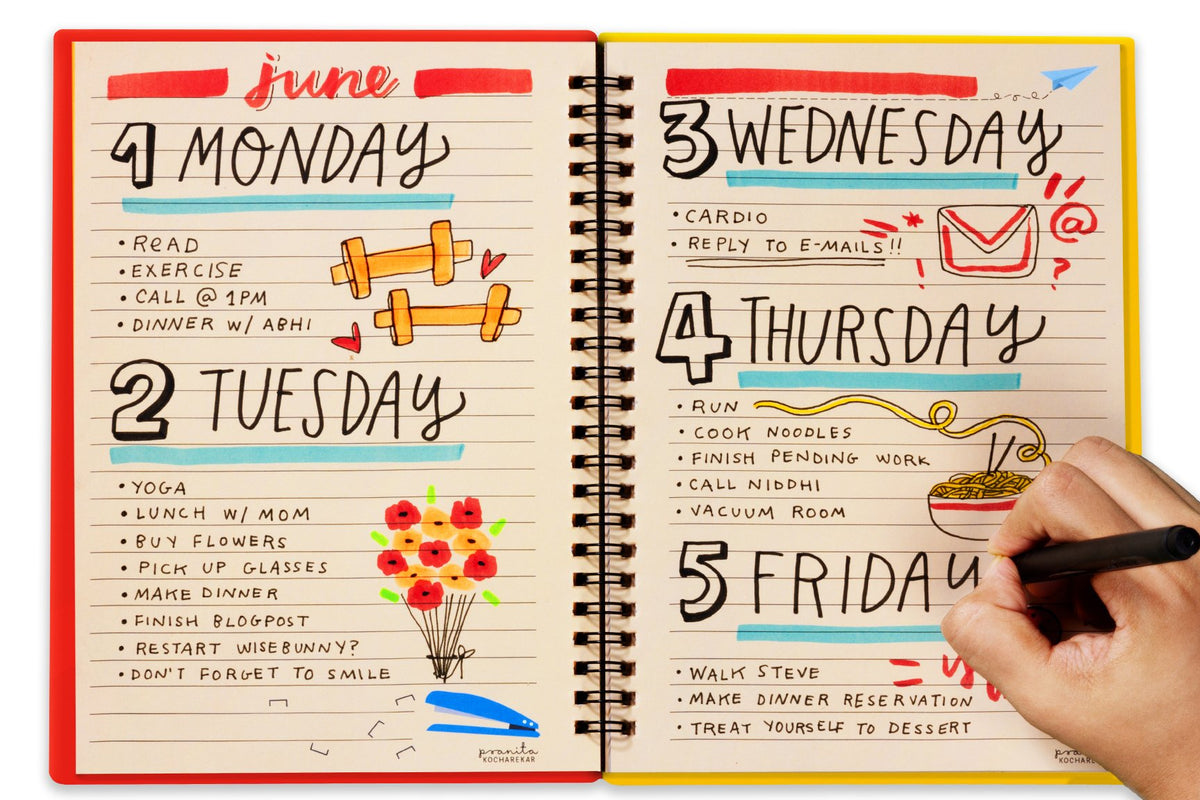 june
1 MONDAY
• READ
• EXERCISE
• CALL @ 1PM
• DINNER W/ ABHI
2 TUESDAY
• YOGA
• LUNCH W/ MOM
• BUY FLOWERS
• PICK UP GLASSES
• MAKE DINNER
• FINISH BLOGPOST
• RESTART WISEBUNNY?
• DON'T FORGET TO SMILE
pranita
KOCHAREKAR
3 WEDNESDAY
• CARDIO
• REPLY TO E-MAILS!!
* @
! ?
4 THURSDAY
• RUN
• COOK NOODLES
• FINISH PENDING WORK
• CALL NIDDHI
• VACUUM ROOM
5 FRIDAY
• WALK STEVE
• MAKE DINNER RESERVATION
• TREAT YOURSELF TO DESSERT